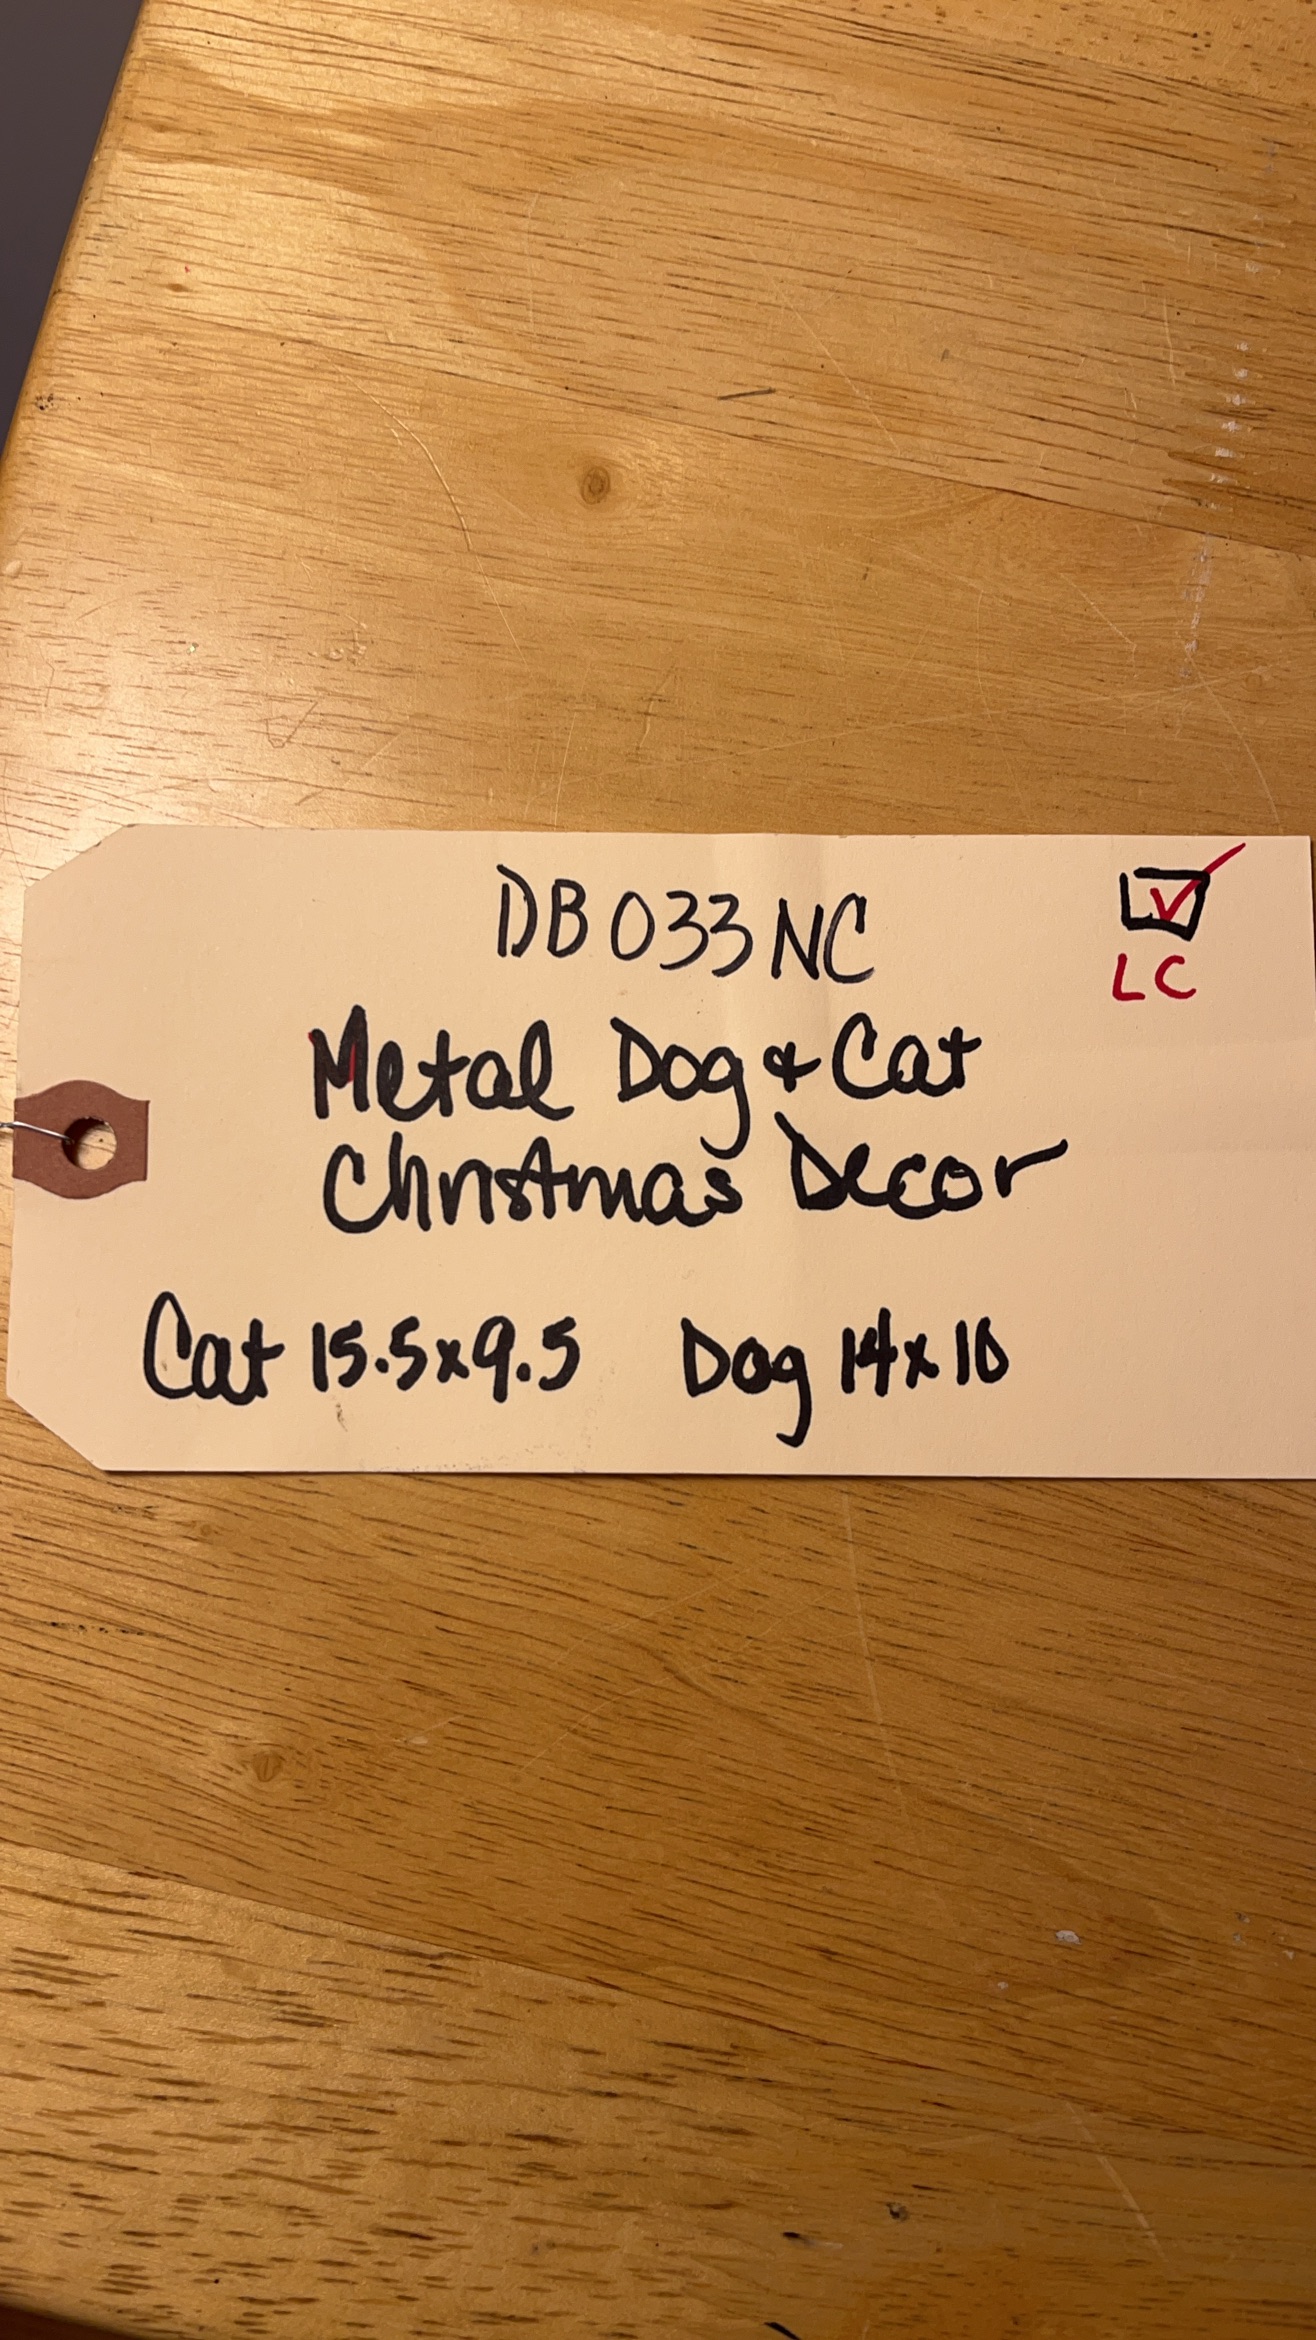 DB033NC
☑
LC
Metal Dog & Cat
Christmas Decor
Cat 15.5x9.5 Dog 14x10